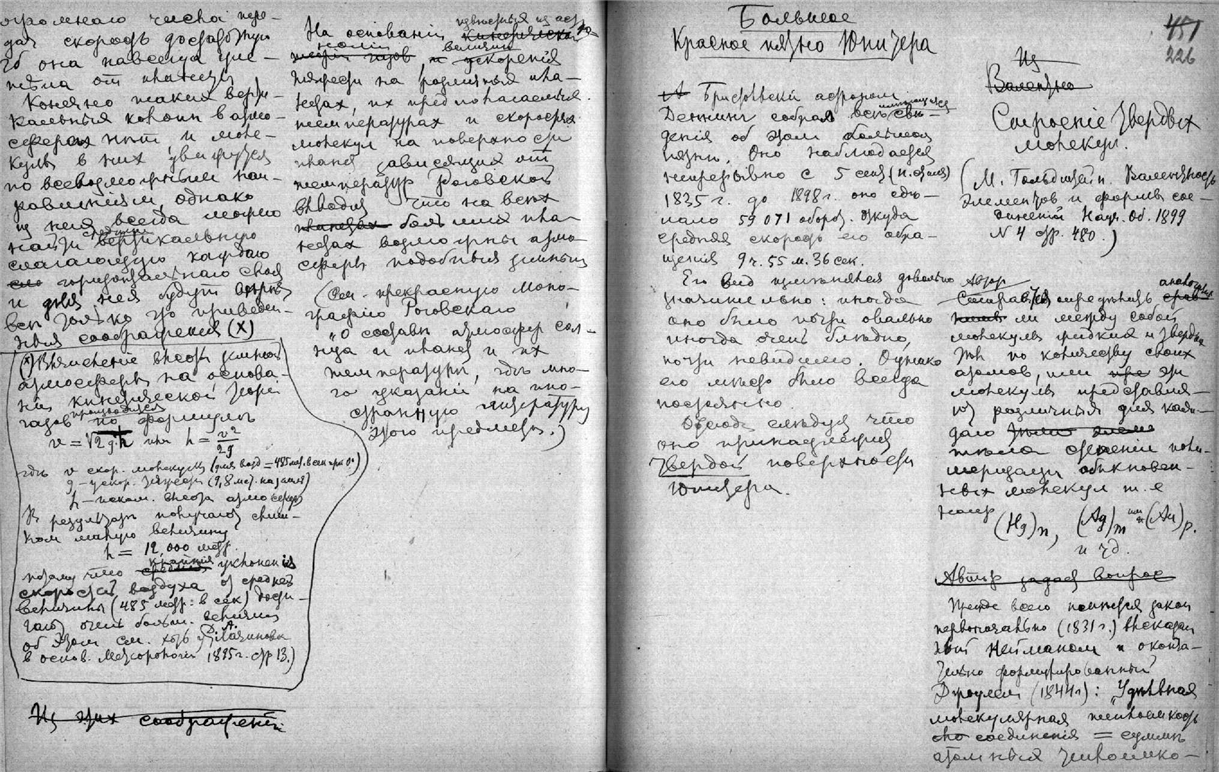 огромнаго числа пере-
дая скорость
то она навсегда уле-
тѣла от планеты
Конечно таких верти-
кальных колонн в атмо-
сферах нѣт и моле-
кулы в них движутся
по всевозможным нап-
равлениям, однако
из них всегда можно
найти вертикальную
слагающую каждаго
и для нея будут
вѣн только что приведен-
ныя соображения (X)
(X) Вычисление высоты земной
атмосферы на основа-
нии кинетической теории
газов производится
по формулѣ
v = √2g.h или h = v²/2g
гдѣ v скор. молекулы (для возд = 485 мет. в сек при 0°)
g - ускор. тяжести (9,8 м. на земле)
h - иском. высота атмосферы
В результатѣ получают слиш-
ком малую величину
h = 12,000 метр.
потому что крайния уклонения
скорости воздуха от средней
величины (485 метр: в сек) дости-
гают очень больш. величин
об этом см. хоть у Д. А. Лачинова
в основ. Метеорологии 1895 г. стр 13.)
Из этих соображений
На основании
величин и ускорения
тяжести на различных пла-
нетах, их предполагаемыя
температуры и скорости
молекул на поверхности
планет, зависящия от
температур Роговской
выводит что на всех
планетах больших пла-
нетах возможны атмо-
сферы подобныя земным
(См. прекрасную моно-
графию Роговского
„О составѣ атмосфер сол-
нца и планет и их
температурѣ, гдѣ мно-
го указаний на ино-
странную литературу
этого предмета.)
Большое
Красное пятно Юпитера
А Бристольский астроном
Деннинг собрал всѣ имѣющияся свѣ-
дения об этом большом
пятнѣ. Оно наблюдается
непрерывно с 5 сент (н. стиля)
1835 г. до 1898 г. оно сдѣ-
лало 59 071 оборот, откуда
средняя скорость его обра-
щения 9 ч. 55 м. 36 сек.
Его вид измѣнялся довольно
значительно: иногда
оно было почти овально
иногда очень блѣдно,
почти невидимо. Однако
его мѣсто было всегда
постоянно
Отсюда слѣдует что
оно принадлежит
твердой поверхности
Юпитера.
451
226
Из
Валентно
Строение твердых
молекул.
(М. Гольдштейн. Валентность
элементов и формы сое-
динений Науч. Об. 1899
N 4 стр. 480.)
Автор
старается опредѣлить аналогичны
ли между собой
молекулы жидких и твердых
тѣл по количеству своих
атомов, или же
молекулы представля-
ют различныя для каж-
даго
тѣла степени поли-
меризации обыкновен-
ных молекул т. е
напр (Hg)n, (Ag)m или (Au)p.
и т.д.
Автор задает вопрос
Прежде всего имѣется закон
первоначально (1831 г.) высказан
ный Нейманом и оконча-
тельно формулированный
(1844 г): „Удѣльная
молекулярная теплоемкость
соединения = суммѣ
атомных теплоемко-